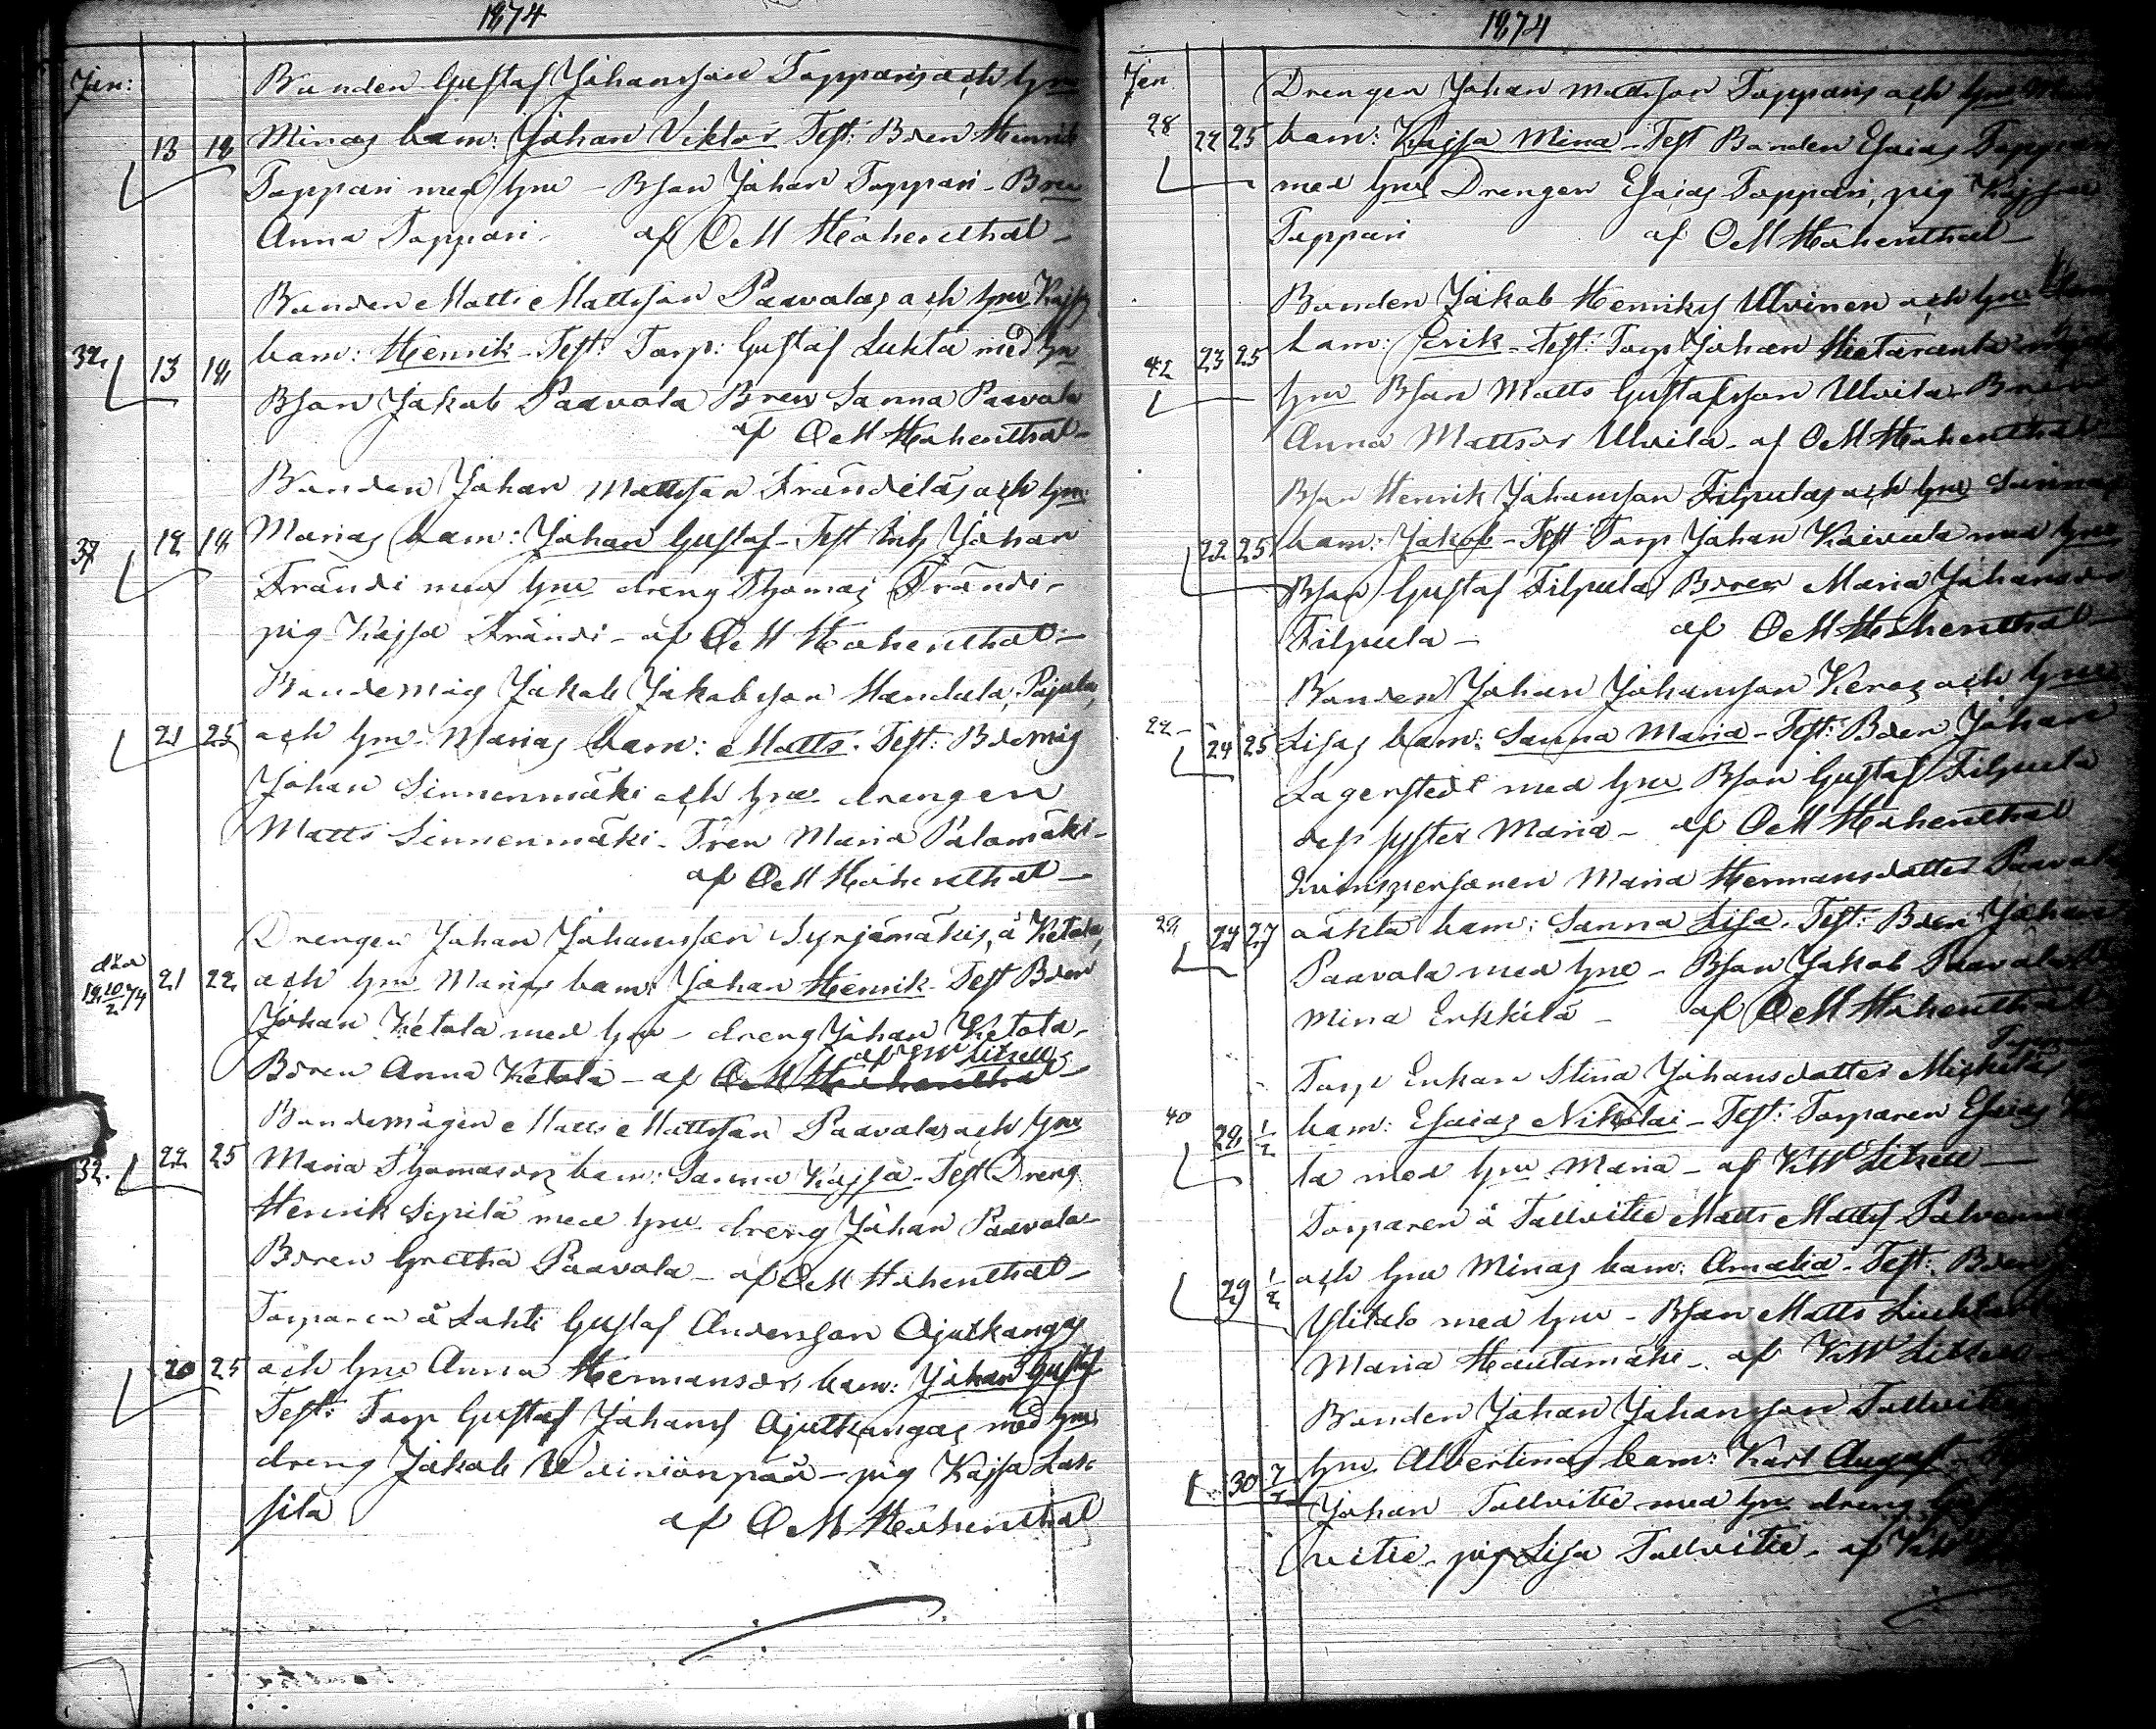 1874
Jan:
Bunden Gustaf Johansson Toppari's och hru
13 18 Minas barn: Johan Viktor Test: Bden Henrik
Toppari med hru - Bson Johan Toppari - Bdren
Anna Toppari. af O M Hohenthal -
Bonden Matts Mattsson Paavalas och hru Kajsas
32. 13 18 barn: Henrik - Test: Torp: Gustaf Lukta med hru
Bson Jakob Paavola Bdren Sanna Paavola
af O M Hohenthal -
Bonden Johan Mattsson Frändiläs och hru
37 12 18 Marias barn: Johan Gustaf - Test Inh Johan
Frändi med hru dreng Thomas Frändi -
pig Kajsa Frändi - af O M Hohenthal -
Bondemåg Jakob Jakobsson Mandula, Pajula,
21 25 och hru Marias barn: Matts. Test: Bdemåg
Johan Sinnenmäki och hru drengen
Matts Sinnenmäki - Maria Palomäki -
af O M Hohenthal -
Drengen Johan Johansson Syrjämäkis, å Ketola,
död 19 10/2 74 21 22 och hru Marias barn: Johan Henrik - Test Bden
Johan Ketola med hru - dreng Johan Ketola,
af K W Litzell
Bdren Anna Ketola - af O M Hohenthal -
Bondemågen Matts Mattsson Paavolas och hru
32. 22 25 Maria Thomasdrs barn: Sanna Kajsa - Test Dreng
Henrik Sipilä med hru dreng Johan Paavola -
Bdren Gretha Paavola - af O M Hohenthal -
Torparen å Lahti Gustaf Andersson Ojutkangas
20 25 och hru Anna Hermansdrs barn: Johan Gustaf
Test: Torp Gustaf Johans Ojutkangas med hru
dreng Jakob Wäiniönpää - pig Kajsa Las-
sila af O M Hohenthal
1874
Jan
Drengen Johan Mattsson Topparis och hru
28 22 25 barn: Kajsa Mina - Test Bonden Esaias Toppari
med hru Drengen Esaias Toppari, pig Kajsa
Toppari af O M Hohenthal -
Bonden Jakob Henriks Ulvinen och hru
42 23 25 barn: Erik - Test: Torp Johan Hietaranta med
hru Bson Matts Gustafsson Ulvila - Bdren
Anna Mattsdr Ulvila - af O M Hohenthal
Bson Henrik Johansson Filpulas och hru Sannas
22 25 barn: Jakob - Test Torp Johan Koivula med hru
Bson Gustaf Filpula Bdren Maria Johansdr
Filpula - af O M Hohenthal -
Bonden Johan Johansson Keros och hru
22 - 24 25 Lisas barn: Sanna Maria - Test: Bden Johan
Lagerstedt med hru Bson Gustaf Filpula
dess syster Maria - af O M Hohenthal
Qvinspersonen Maria Hermansdotter Paavola
29 24 27 oäkta barn: Sanna Lisa. Test: Bden Johan
Paavola med hru - Bson Jakob Paavola
Mina Erkkilä - af O M Hohenthal
Torp Enkan Stina Johansdotter Miekilä
40 28 1/2 barn: Esaias Nikolai - Test: Torparen Esaias
la med hru Maria - af K W Litzell -
Torparen å Tallvitie Matts Matts Palven
29 1/2 och hru Minas barn: Amalia - Test: Bden
Ylitalo med hru - Bson Matts
Maria Hautamäki - af K W Litzell
Bonden Johan Johansson Tallvitie
30 7/2 hru Albertinas barn: Karl August -
Johan Tallvitie med hru dreng
vitie - pig Lisa Tallvitie - af K W